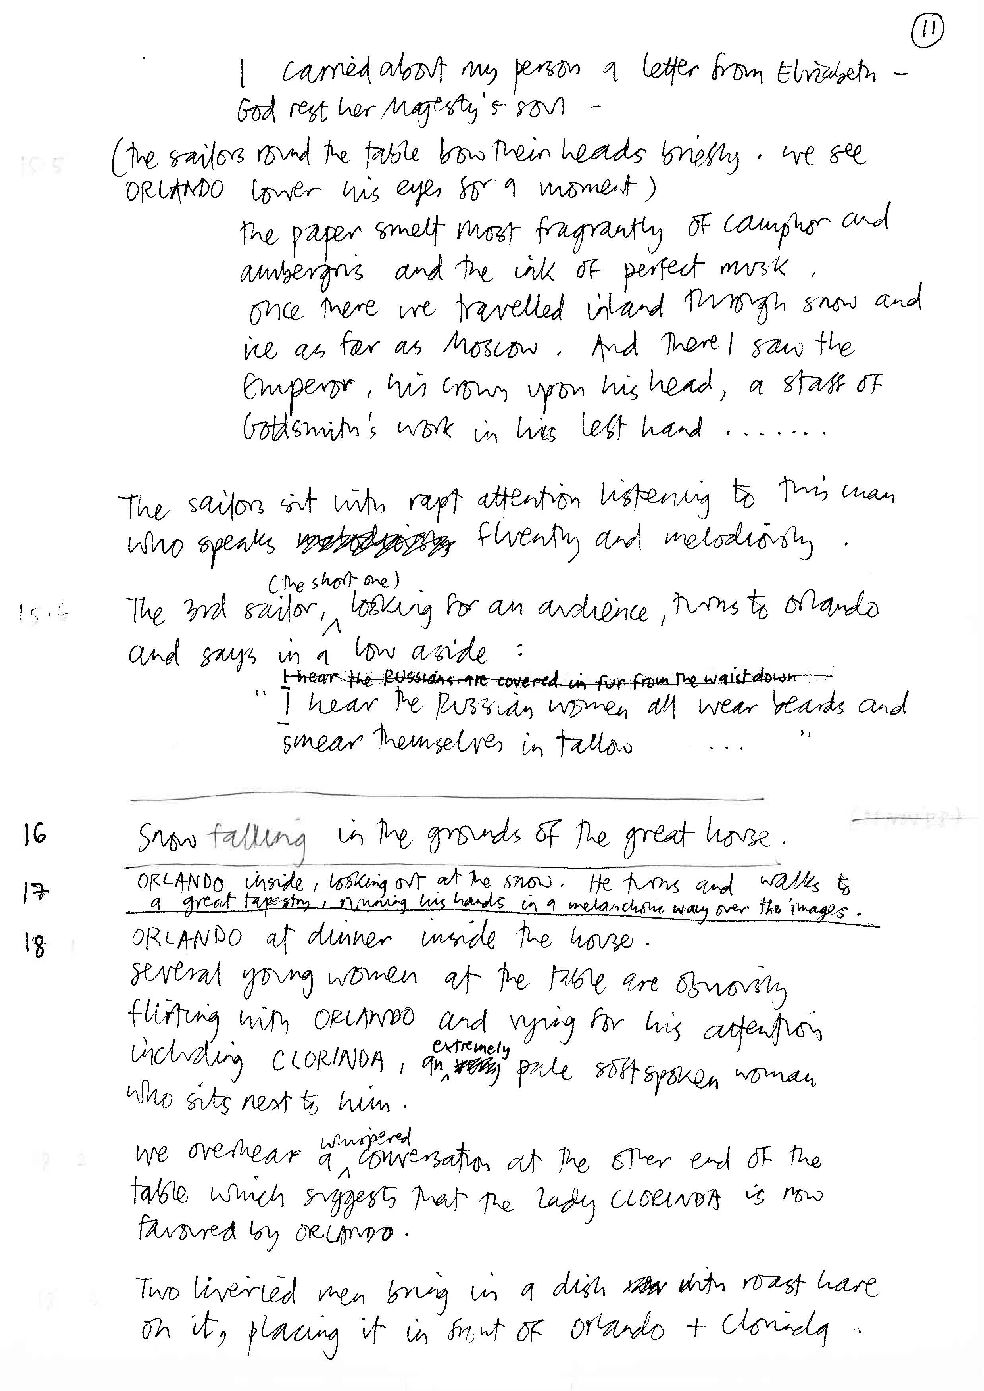 11
I carried about my person a letter from Elizabeth -
God rest her Majesty's soul -
15.5
(the sailors round the table bow their heads briefly. We see
ORLANDO lower his eyes for a moment)
the paper smelt most fragrantly of camphor and
ambergris and the ink of perfect musk.
once there we travelled inland through snow and
ice as far as Moscow. And there I saw the
Emperor, his crown upon his head, a staff of
Goldsmith's work in his left hand .......
The sailors sit with rapt attention listening to this man
who speaks fluently and melodiously.
(the short one)
15.6
The 3rd sailor, looking for an audience, turns to Orlando
and says in a low aside :
I hear the Russians are covered in fur from the waist down
" I hear the Russian women all wear beards and
smear themselves in tallow ... "
16
Snow falling in the grounds of the great house.
17
ORLANDO inside, looking out at the snow. He turns and walks to
a great tapestry, running his hands in a melancholic way over the images.
18
ORLANDO at dinner inside the house.
Several young women at the table are obviously
flirting with ORLANDO and vying for his attention
extremely
including CLORINDA, an very pale soft spoken woman
who sits next to him.
whispered
We overhear a conversation at the other end of the
table which suggests that the lady CLORINDA is now
favoured by ORLANDO.
Two liveried men bring in a dish with roast hare
on it, placing it in front of Orlando + Clorinda.